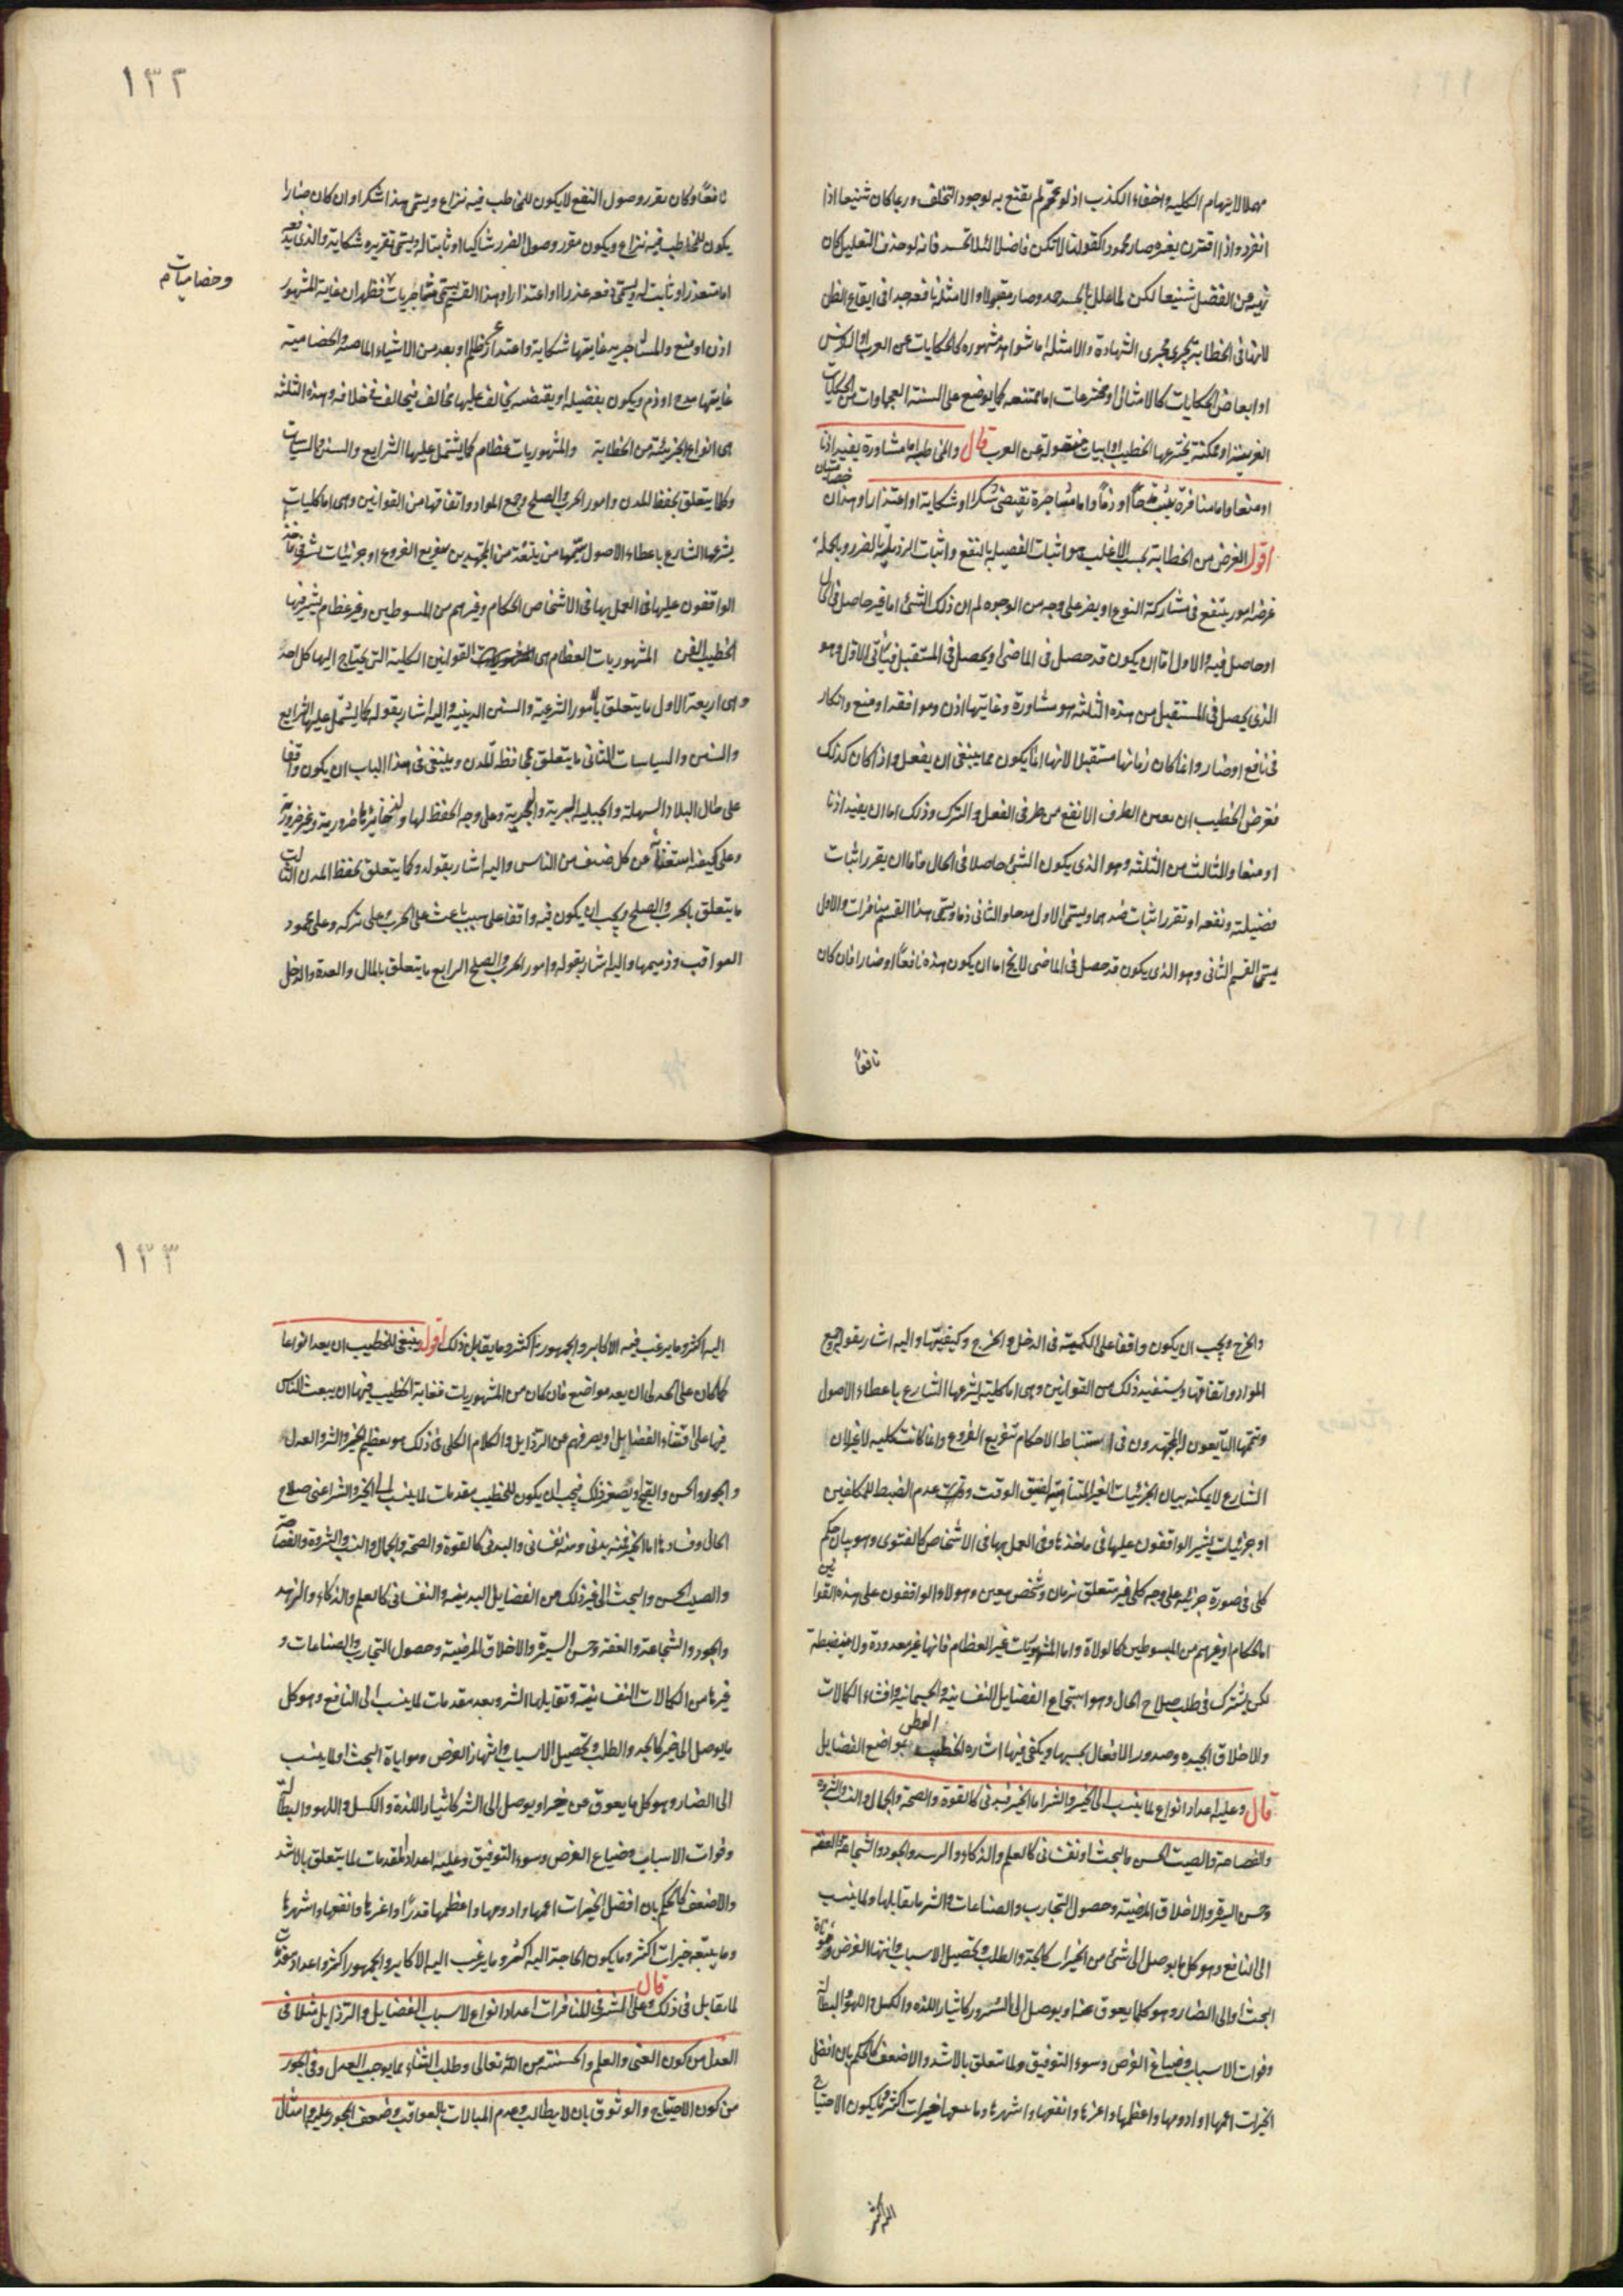 مهملا لايهام الكليه واخفاء الكذب اذ لو عمم لم يقتنع به لوجود التخلف وربما كان شنيعا اذا
انفرد واذا اقترن بغيره صار محمودا كقولنا لا تكن فاضلا لئلا تحسد فانه لو حذف التعليل كان
نهيه عن الفضل شنيعا لكن لما علل بالحسد صار مقبولا والامثلة نافعه جدا فى ايقاع الظن
لانها فى الخطابة تجرى مجرى الشهادة والامثله اما شواهد مشهوره كالحكايات عن العرب
او ابعاض الحكايات كالامثال او مخترعات اما ممتنعه كما يوضع على السنة العجماوات من الحكايات
الغريبة او ممكنة يخترعها الخطيب او ابيات منقولة عن العرب قال والمخاطبة اما مشاورة يفيد اذنا
او منعا واما منافرة مدحا او ذما واما مشاجرة تقتضى شكرا او شكاية او اعتذارا
اقول الغرض من الخطابة بحسب الاغلب هو اثبات الفضيلة بالنفع واثبات الرذيلة بالضرر وبالجملة
غرضه امور ينتفع فى مشاركة النوع او يضر على وجه من الوجوه ثم ان ذلك الشئ اما غير حاصل فى الحال
او حاصل فيه والاول اما ان يكون قد حصل فى الماضى او يحصل فى المستقبل
الذى يحصل فى المستقبل من هذه الثلثه هو مشاورة وغايتها اذن وموافقه او منع وانكار
فى نافع او ضار وانما كان زمانها مستقبلا لانها انما يكون مما ينبغى ان يفعل واذا كان كذلك
فغرض الخطيب ان يعين الطرف الانفع من طرفى الفعل والترك وذلك اما ان يفيد اذنا
او منعا والثالث من الثلثه وهو الذى يكون الشئ حاصلا فى الحال فاما ان يقرر اثبات
فضيلته ونفعه او تقرر اثبات ضدهما ويسمى الاول مدحا والثانى ذما ويسمى هذا القسم منافرات والاول
القسم الثانى وهو الذى يكون قد حصل فى الماضى لا يخ اما ان يكون هذه نافعًا او ضارا فان كان
نافعًا
١٣٢
نافعًا وكان يقرر وصول النفع لا يكون للمخاطب فيه نزاع ويسمى هذا شكرا وان كان ضارا
يكون للمخاطب فيه نزاع ويكون مقرر وصول الضرر شاكيا او ثابتا له ويسمى تقريره شكاية والذى
اما معتذرا وثابت له ويسمى دفعه عذرا او اعتذارا وهذا القسم يسمى مشاجريات فظهر ان غاية المشهور
وخصاميات م
اذن او منع والمشاجريه غايتها شكاية واعتذار
غايتها مدح او ذم ويكون بفضيله او بنقيضه
هى انواع الجزئية من الخطابة والمشهوريات عظام كما يشتمل عليها الشرايع والسنن والسياسات
وكما يتعلق بحفظ المدن وامور الحرب والصلح وجمع المواد وانفاقها من القوانين وهى اما كليات
يشرعها الشارع باعطاء الاصول يتممها من يتبعه من المجتهدين بتفريع الفروع او جزئيات
الواقفون عليها فى العمل بها فى الاشخاص الحكام وغيرهم من المبسوطين وغير عظام يشير فيها
الخطيب الفن المشهوريات العظام هى القوانين الكلية التى يحتاج اليها كل احد
وهى اربعة الاول ما يتعلق بالامور الشرعية والسنن الدينيه واليه اشار بقوله كما يشتمل عليها الشرايع
والسنن والسياسات الثانى ما يتعلق بمحافظه المدن وينبغى فى هذا الباب ان يكون واقفا
على حال البلاد السهلة والجبلية البرية والبحرية وعلى وجه الحفظ لها
وعلى كيفيه استغناء عن كل صنف من الناس واليه اشار بقوله وكما يتعلق بحفظ المدن الثالث
ما يتعلق بالحرب والصلح ويجب ان يكون فيه واقفا على سبب باعث على الحرب وعلى تركه وعلى محمود
العواقب وذميمها واليه اشار بقوله وامور الحرب والصلح الرابع ما يتعلق بالمال والعدة والدخل
والخرج ويجب ان يكون واقفا على الكمية فى الدخل والخرج وكيفيتها واليه اشار بقوله وجمع
المواد وانفاقها ويستفيد ذلك من القوانين وهى اما كلية يشرعها الشارع باعطاء الاصول
ويتممها التابعون المجتهدون فى استنباط الاحكام بتفريع الفروع وانما كانت كليه لان
الشارع لا يمكنه بيان الجزئيات الغير المتناهية لضيق الوقت وعدم الضبط للمكلفين
او جزئيات يشير الواقفون عليها فى ماخذها وفى العمل بها فى الاشخاص كالفتوى وهو بيان حكم
كلى فى صورة جزئيه على وجه كلى غير متعلق بزمان وشخص معين وهولاء الواقفون على هذه القوانين
اما الحكام او غيرهم من المبسوطين كالولاة واما المشهوريات غير العظام فانها غير معدودة ولا منضبطة
لكن يشترك فى طلب صلاح الحال وهو استجماع الفضايل النفسانية والجسمانية واقتناء الكمالات
والاخلاق الجيده وصدور الافعال بحسبها ويكفى فيها اشاره الخطيب بمواضع الفضايل
قال وعليه اعداد انواع لما ينسب الى الخير والشر اما الخير فبدنى كالقوة والصحة والجمال والنسب والثروة
والفصاحة والصيت الحسن والبخت او نفسانى كالعلم والذكاء والزهد والجود والشجاعة والعفه
وحسن السيرة والاخلاق المرضية وحصول التجارب والصناعات والشر ما يقابلها ولما ينسب
الى النافع وهو كل ما يوصل الى شئ من الخيرات كالجد والطلب وتحصيل الاسباب وانتهاز الفرض ومواتاة
البخت والى الضار وهو كل ما يعوق عنها ويوصل الى الشرور كايثار اللذه والكسل واللهو والبطالة
وفوات الاسباب وضياع الفرض وسوء التوفيق ولما تتعلق بالاشد والاضعف كالحكم بان افضل
الخيرات اعمها وادومها واعظمها واعزها وانفعها واشهرها وما يتبعها خيرات اكثر وما يكون الاحتياج
اليه اكثر
١٣٣
اليه اكثر وما يرغب فيه الاكابر والجمهور اكثر وما يقابل ذلك اقول ينبغى للخطيب ان يعد انواعا
كما كان على الجدلى ان يعد مواضع فان كان من المشهوريات فغاية الخطيب فيها ان يبعث الناس
فيها على اقتناء الفضايل او يصرفهم عن الرذايل والكلام الكلى فى ذلك هو تعظيم الخير والشر والعدل
والجور والحسن والقبح او تصغير ذلك فيجب ان يكون للخطيب مقدمات لما ينسب الى الخير والشر اعنى صلاح
الحال وفسادها اما الخير فمنه بدنى ومنه نفسانى والبدنى كالقوة والصحة والجمال والنسب والثروة والفصاحة
والصيت الحسن والبخت الى غير ذلك من الفضايل البدنيه والنفسانى كالعلم والذكاء والزهد
والجود والشجاعة والعفة وحسن السيرة والاخلاق المرضية وحصول التجارب والصناعات و
غيرها من الكمالات النفسانية وتقابلها الشر وبعد مقدمات لما ينسب الى النافع وهو كل
ما يوصل الى خير كالجد والطلب وتحصيل الاسباب وانتهاز الفرض ومواتاة البخت او لما ينسب
الى الضار وهو كل ما يعوق عن خير او يوصل الى الشر كايثار اللذة والكسل واللهو والبطالة
وفوات الاسباب وضياع الفرض وسوء التوفيق وعليه اعداد المقدمات لما يتعلق بالاشد
والاضعف كالحكم بان افضل الخيرات اعمها وادومها واعظمها قدرًا واعزها وانفعها واشهرها
وما يتبعه خيرات اكثر وما يكون الحاجة اليه اكثر وما يرغب اليه الاكابر والجمهور اكثر واعداد مقدمات
لما يقابل فى ذلك قال وعلى المشرف للمنافرات اعداد انواع لاسباب الفضايل والرذايل مثلا فى
العدل من كون الغنى والعلم والحسنة من الله تعالى وطلب الثناء مما يوجب العدل وفى الجور
من كون الاحتياج والوثوق بان لا يطالب وعدم المبالات بالعواقب وضعف المجور عليه وامثال